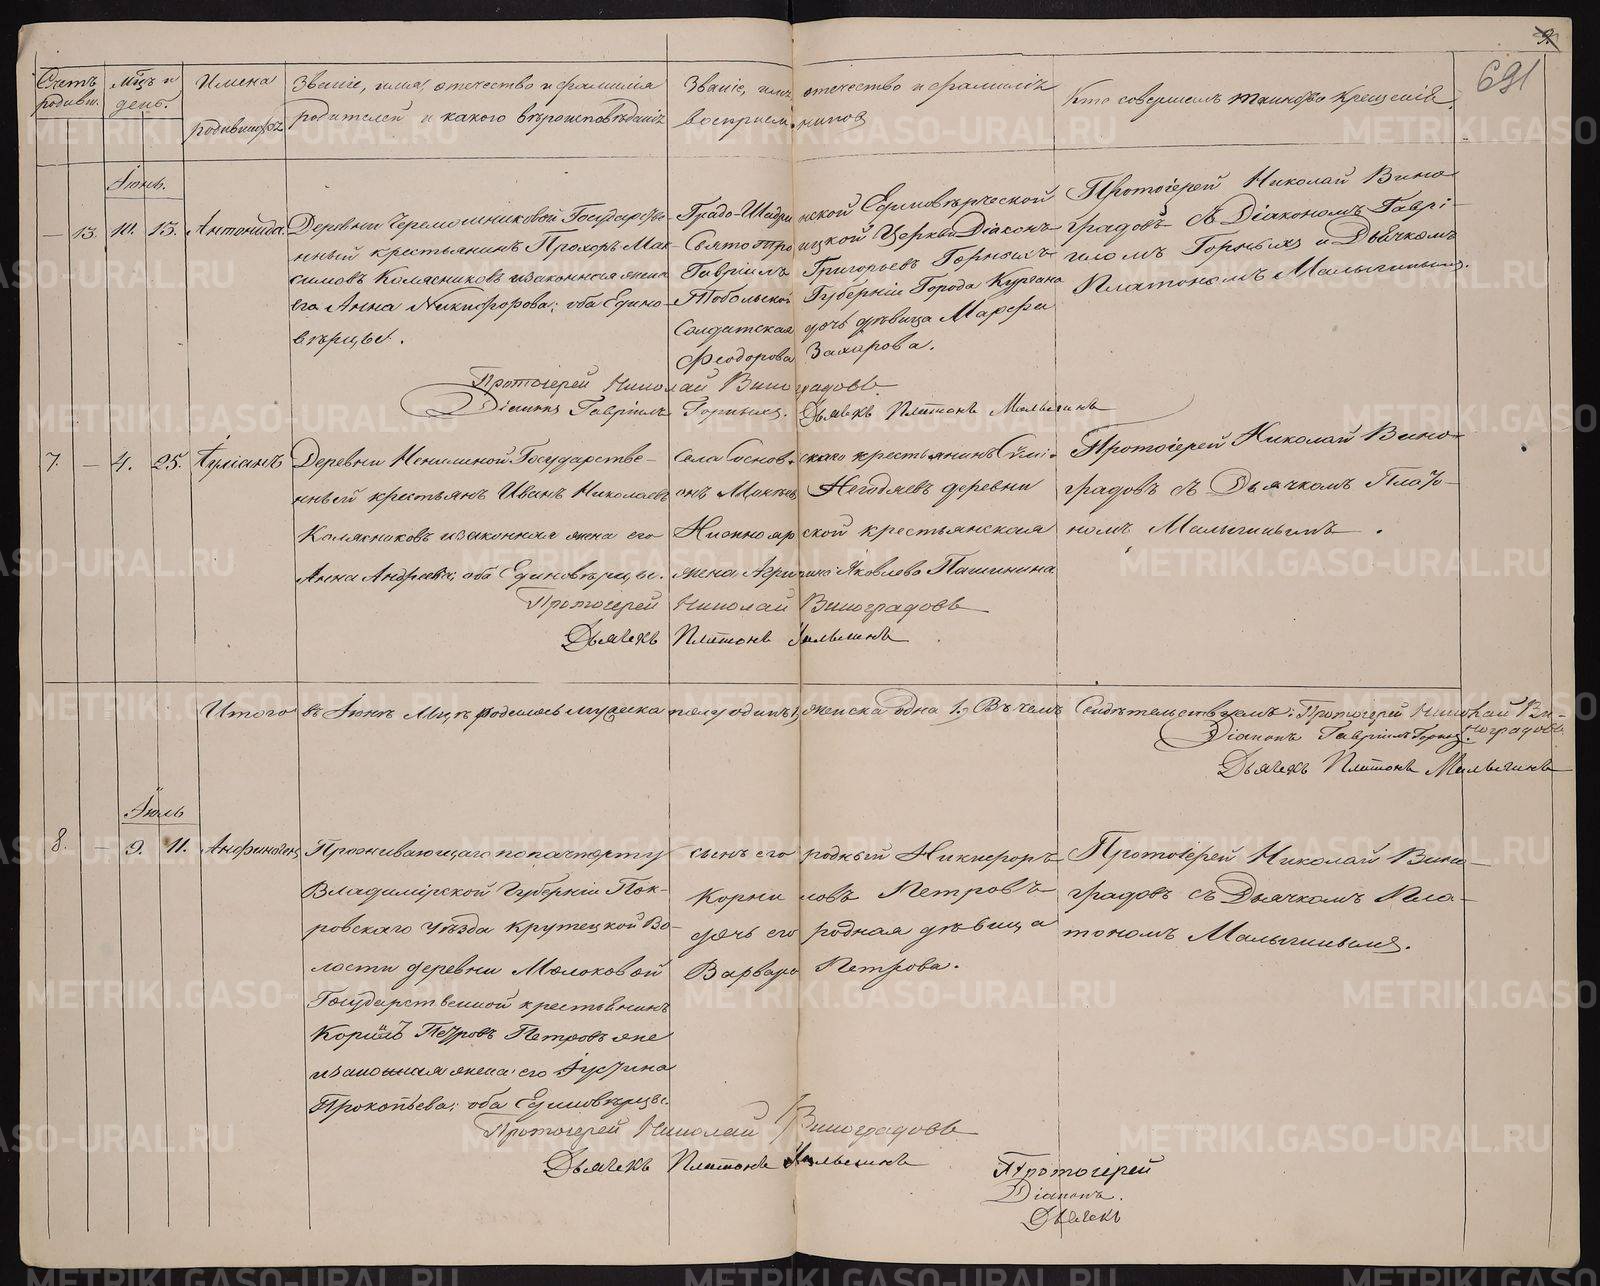 9.
691
Счетъ родивш.
Мцъ и день.
Имена родившихся
Званіе, имя, отечество и фамилія
родителей и какого вѣроисповѣданія
Званіе, имя отечество и фамилія
воспріемниковъ
Кто совершалъ таинство крещенія
Іюнь.
— 13. 10. 13. Антонида.
Деревни Черемошниковой Государстве-
нный крестьянинъ Прохоръ Мак-
симовъ Колясниковъ и законная жена
его Анна Никифорова; оба Едино-
вѣрцы.
Градо-Шадринской Единовѣрческой
Свято Троицкой Церкви Діаконъ
Гавріилъ Григорьевъ Горныхъ
Тобольской Губерніи Города Кургана
Солдатская дочь дѣвица Марфа
Феодорова Захарова.
Протоіерей Николай Вино-
градовъ съ Діакономъ Гаврі-
иломъ Горныхъ и Дьячкомъ
Платономъ Малыгинымъ.
Протоіерей Николай Виноградовъ
Діаконъ Гавріилъ Горныхъ. Дьячекъ Платонъ Малыгинъ
7. — 4. 25. Іуліанъ
Деревни Ненилиной Государстве-
нный крестьянъ Иванъ Николаевъ
Колясниковъ и законная жена его
Анна Андреева; оба Единовѣрцы.
Села Сосновскаго крестьянинъ Сумі-
онъ Негодяевъ деревни
крестьянская
жена Яковлева Пашинина
Протоіерей Николай Вино-
градовъ съ Дьячкомъ Плато-
номъ Малыгинымъ.
Протоіерей Николай Виноградовъ
Дьячекъ Платонъ Малыгинъ
Итого въ Іюнѣ Мцѣ родилось мужеска пола одинъ 1, женска одна 1. Въ чемъ Свидѣтельствуемъ: Протоіерей Николай Ви-
ноградовъ
Діаконъ Гавріилъ Горныхъ.
Дьячекъ Платонъ Малыгинъ
Іюль
8. — 9. 11. Анфиногенъ
Проживающаго по пачпорту
Владимірской Губерніи Пок-
ровскаго Уѣзда Крутецкой Во-
лости деревни Молоковой
Государственной крестьянинъ
Корнилъ Петровъ Петровъ же
и законная жена его Іустина
Прокопьева; оба Единовѣрцы.
сынъ его родный Никифоръ
Корниловъ Петровъ
дочь его родная дѣвица
Варвара Петрова.
Протоіерей Николай Вино-
градовъ съ Дьячкомъ Пла-
тономъ Малыгинымъ.
Протоіерей Николай Виноградовъ
Дьячекъ Платонъ Малыгинъ
Протоіерей
Діаконъ.
Дьячекъ
METRIKI.GASO-URAL.RU